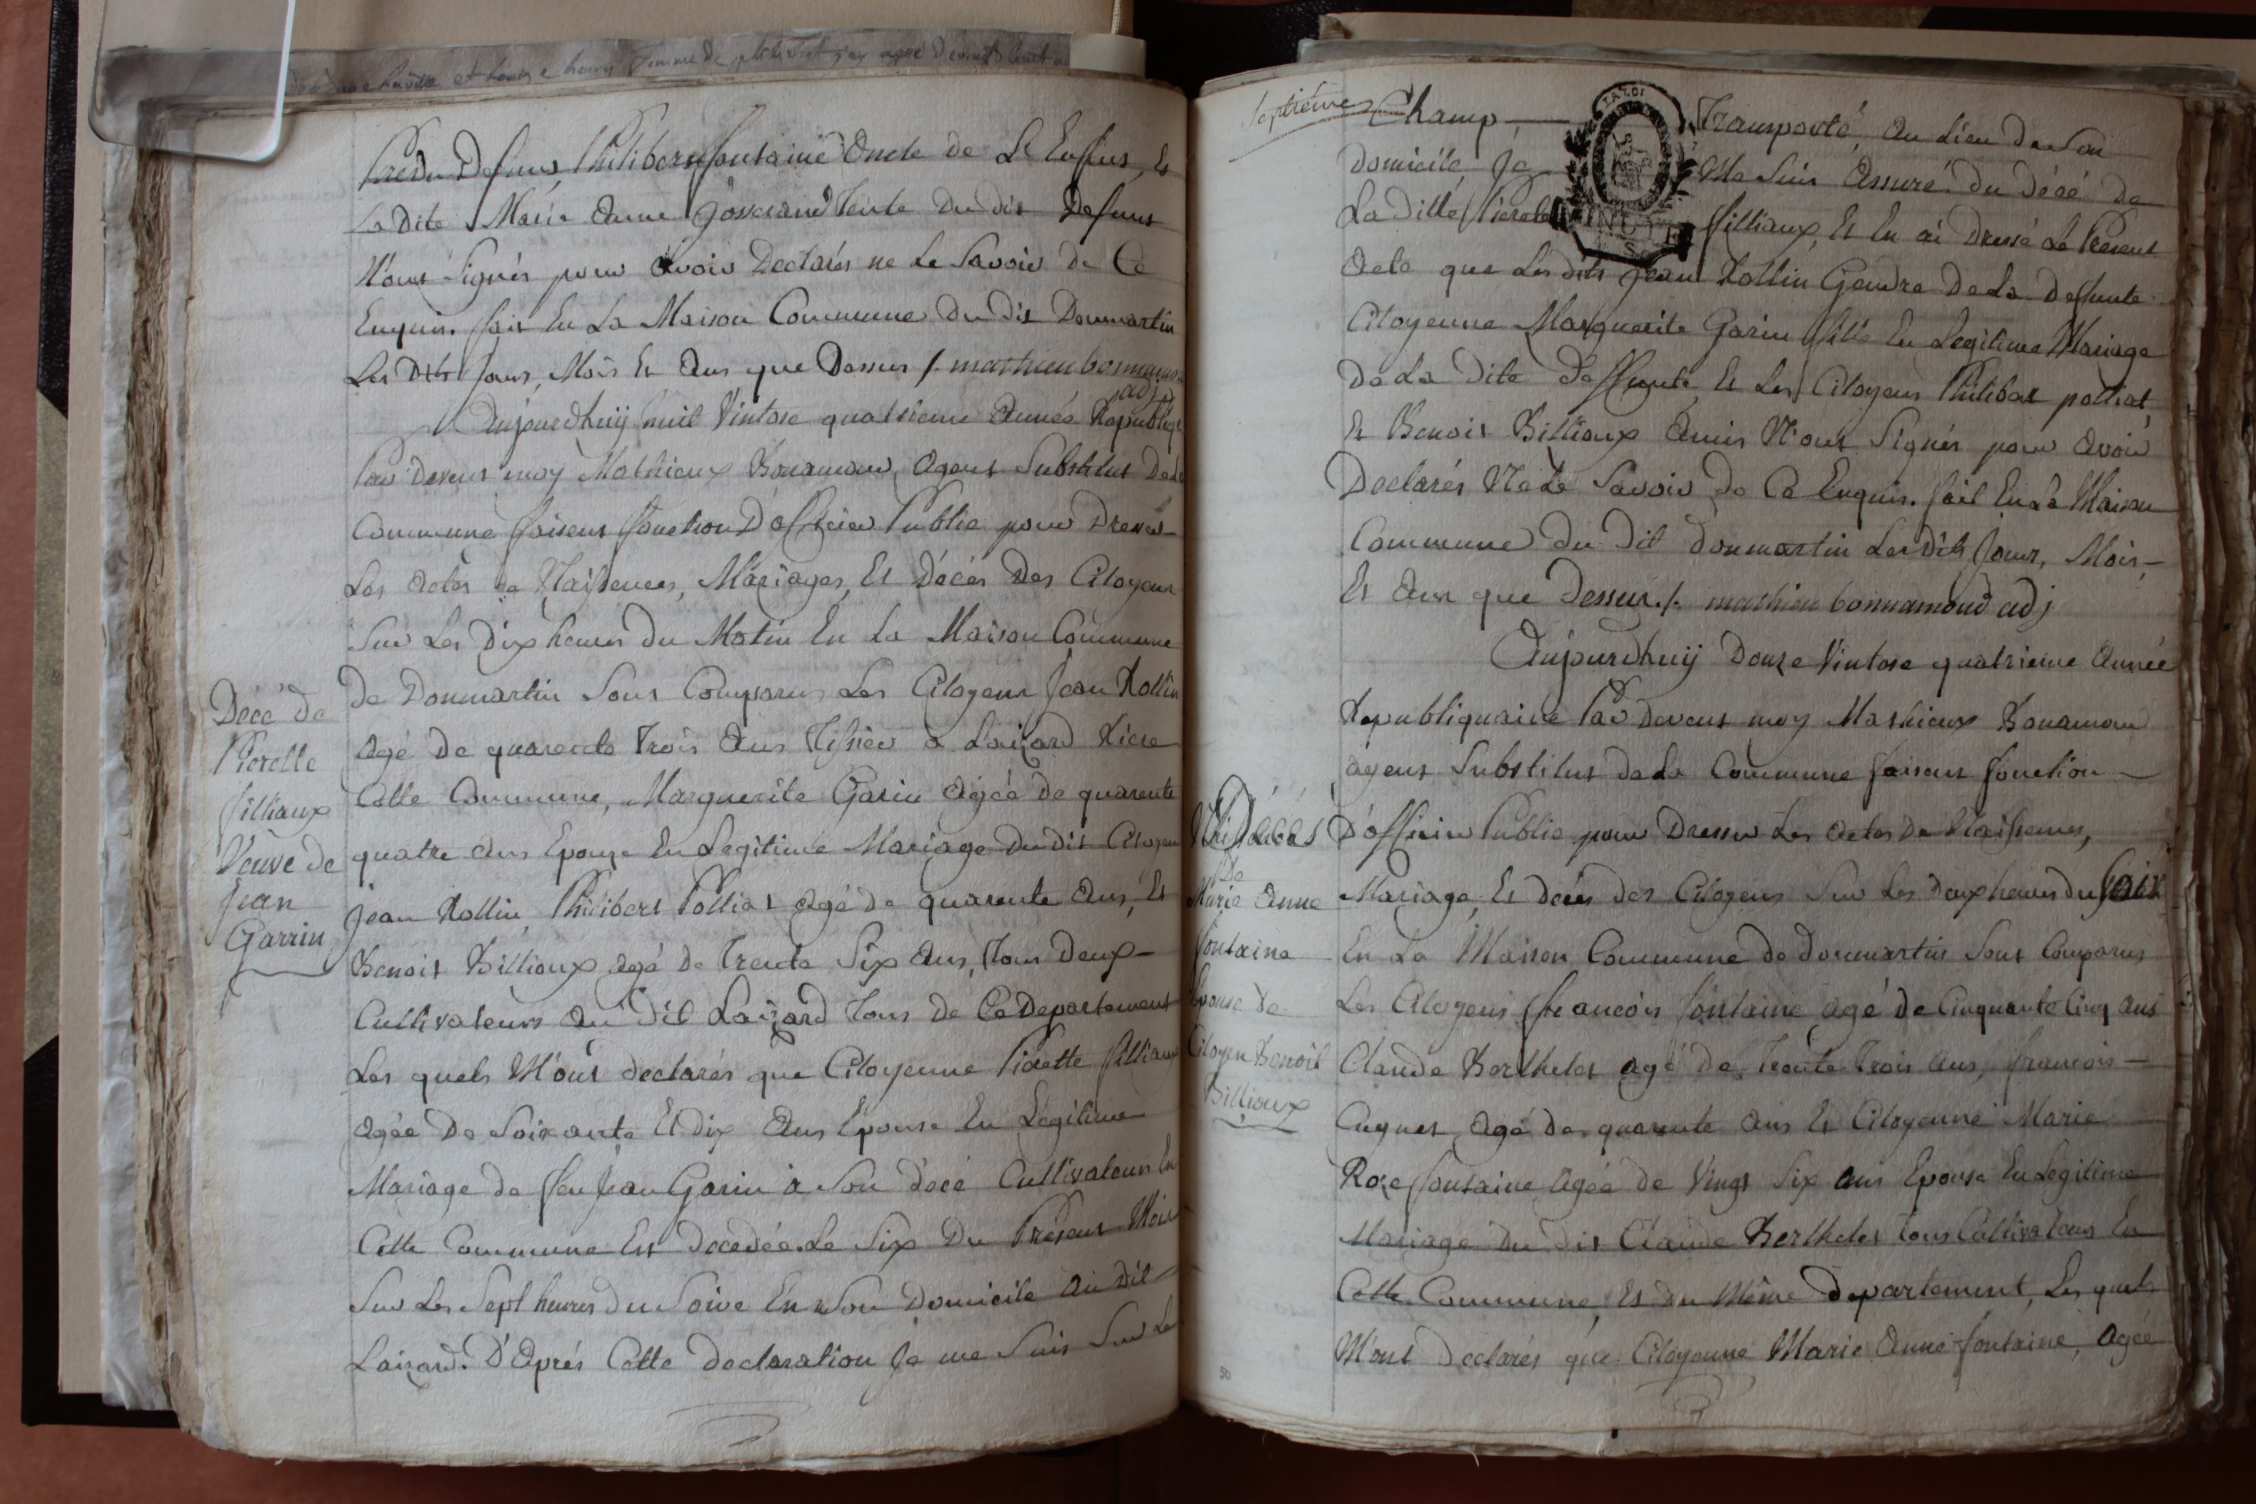 Pre du Defunt, Philibert fontaine Oncle de L'Enffent, Et
La dite Marie Anne Gosserand tente du dit Defunt
N'ont Signés pour avoir Declarés ne Le Savoir de Ce
Enquis. fait En La Maison Commune du dit Dommartin
Les Dits Jours, Mois Et Ans que Dessus /. mathieu bonnamour
adj
Aujourdhuÿ huit Vintose quatrieme Année Republiq
Par devent moy Mathieux Bonamour Agent Substitut De La
Commune faisent fonction D'officier Public pour Dresser
Les Actes de Naissences, Mariages, Et Décés Des Citoyens
Sur Les Dix heures Du Matin En La Maison Commune
de Dommartin Sont Comparus Les Citoyens Jean Rollin
Agé De quarente Trois Ans Tissier a Laizard Riere
Cette Commune, Marguerite Garin Agée de quarente
quatre Ans Epouze En Legitime Mariage du dit Citoyen
Jean Rollin Philibert Polliat Agé de quarente Ans, Et
Benoit Billioux agé de Trente Six Ans, Tous Deux
Cultivateurs Au dit Laizard Tous de Ce Departement
Les quels M'ont declarés que Citoyenne Pierette filliaux
Agée De Soixante Et Dix Ans Epouse En Légitime
Mariage de feu Jean Garin a Son décé Cultivateur En
Cette Commune Est Decedée Le Six Du Présent Mois
Sur Les Sept heures Du Soire En Son Domicile Au dit
Laizard. D'Aprés Cette Declaration Je me Suis Sur Le
Décé de
Pierette
filliaux
Veuve de
Jean
Garrin
Septiéme
Champ Transporté Au Lieu De Son
Domicile, Je Me Suis Assuré du décé de
La ditte Pierette filliaux, Et En ai Dressé Le Present
Acte que Les dits Jean Rollin Gendre De La Deffunte
Citoyenne Marguerite Garin fille En Legitime Mariage
De La Dite deffunte, Et Les Citoyens Philibert polliat
Et Benoit Billioux Amis N'ont Signés pour Avoir
Declarés Ne Le Savoir de Ce Enquis. fait En La Maison
Commune du Dit Dommartin Les Dits Jours, Mois,
Et Ans que Dessus./. mathieu bonnamour adj
Aujourdhuÿ Douze Vintose quatrieme Année
Republiquaine Par Devent moy Mathieux Bonamour
agent Substitut De La Commune faisent fonction
D'officier Public pour Dresser Les Actes De Naissences,
Mariage, Et décés des Citoyens Sur Les Deux heures du Soir
En La Maison Commune de Dommartin Sont Comparus
Les Citoyens francois fontaine agé de Cinquante Cinq ans
Claude Berthelet agé de Trente Trois Ans, francois
Cuynet Agé de quarente Ans Et Citoyenne Marie
Roze fontaine Agée de Vingt Six Ans Epouse En Legitime
Mariage Du Dit Claude Berthelet Tous Cultivateurs En
Cette Commune Et Du Même Departement, Les quels
M'ont Declarés que Citoyenne Marie Anne fontaine, Agée
décés
De
Marie Anne
fontaine
Epouse De
Citoyen Benoit
Billioux
50